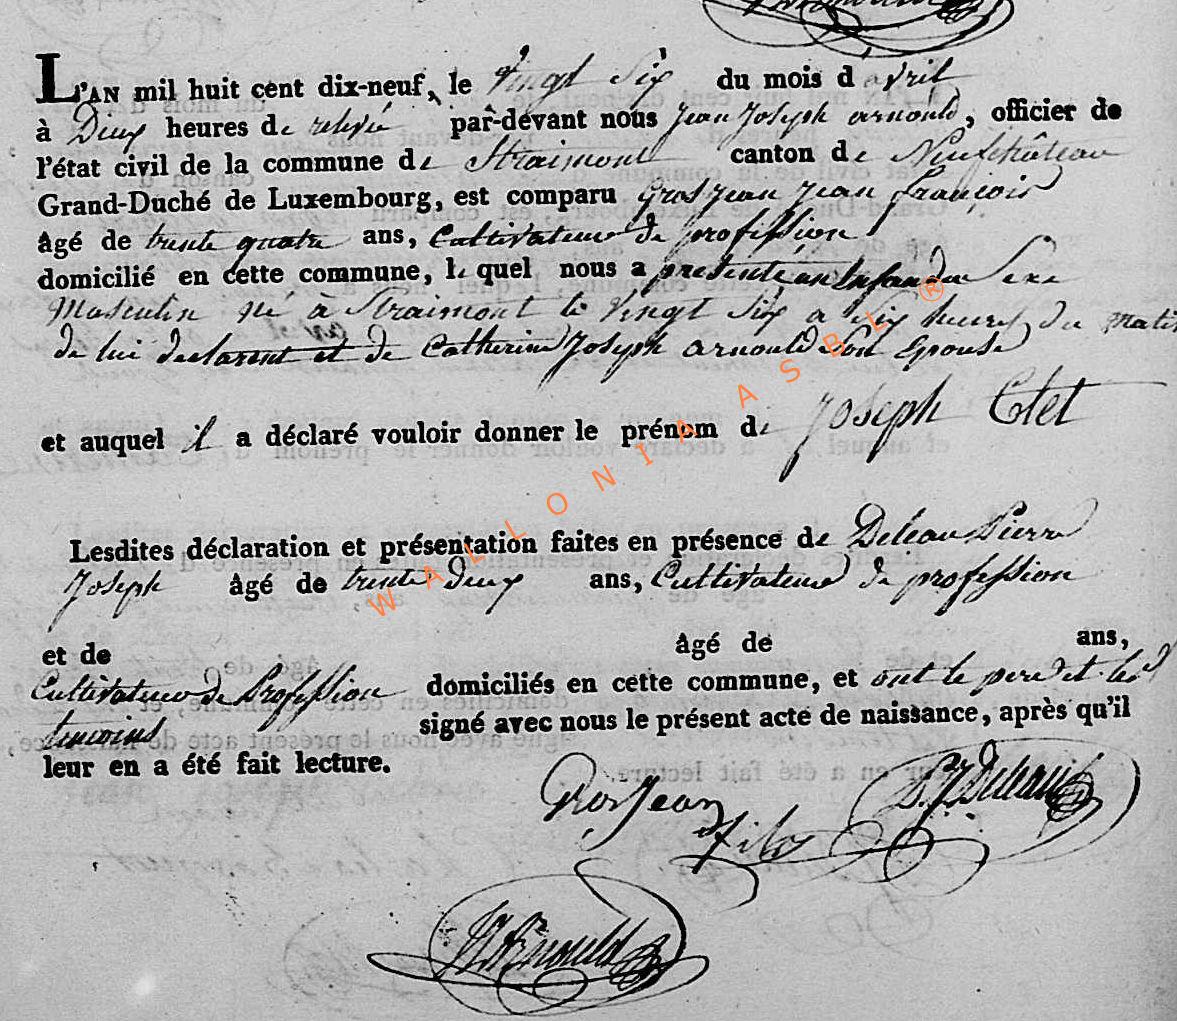 L'AN mil huit cent dix-neuf, le vingt Six du mois d'avril
à Deux heures de relevée par-devant nous Jean Joseph arnould, officier de
l'état civil de la commune de Straimont canton de Neufchâteau
Grand-Duché de Luxembourg, est comparu GrosJean Jean françois
âgé de trente quatre ans, Cultivateur de profession
domicilié en cette commune, lequel nous a présenté un Enfant du Sexe
Masculin né à Straimont le Vingt Six a Six heures du matin
de lui declarent et de Catherine Joseph arnould Son Epouse
et auquel il a déclaré vouloir donner le prénom de Joseph Clet
Lesdites déclaration et présentation faites en présence de Deleau Pierre
Joseph âgé de trente deux ans, Cultivateur de profession
et de âgé de ans,
Cultivateur de Profession domiciliés en cette commune, et ont le pere et les
temoins signé avec nous le présent acte de naissance, après qu'il
leur en a été fait lecture.
GrosJean P. J. Deleau
fils
Arnould
WALLONIA ASBL ®